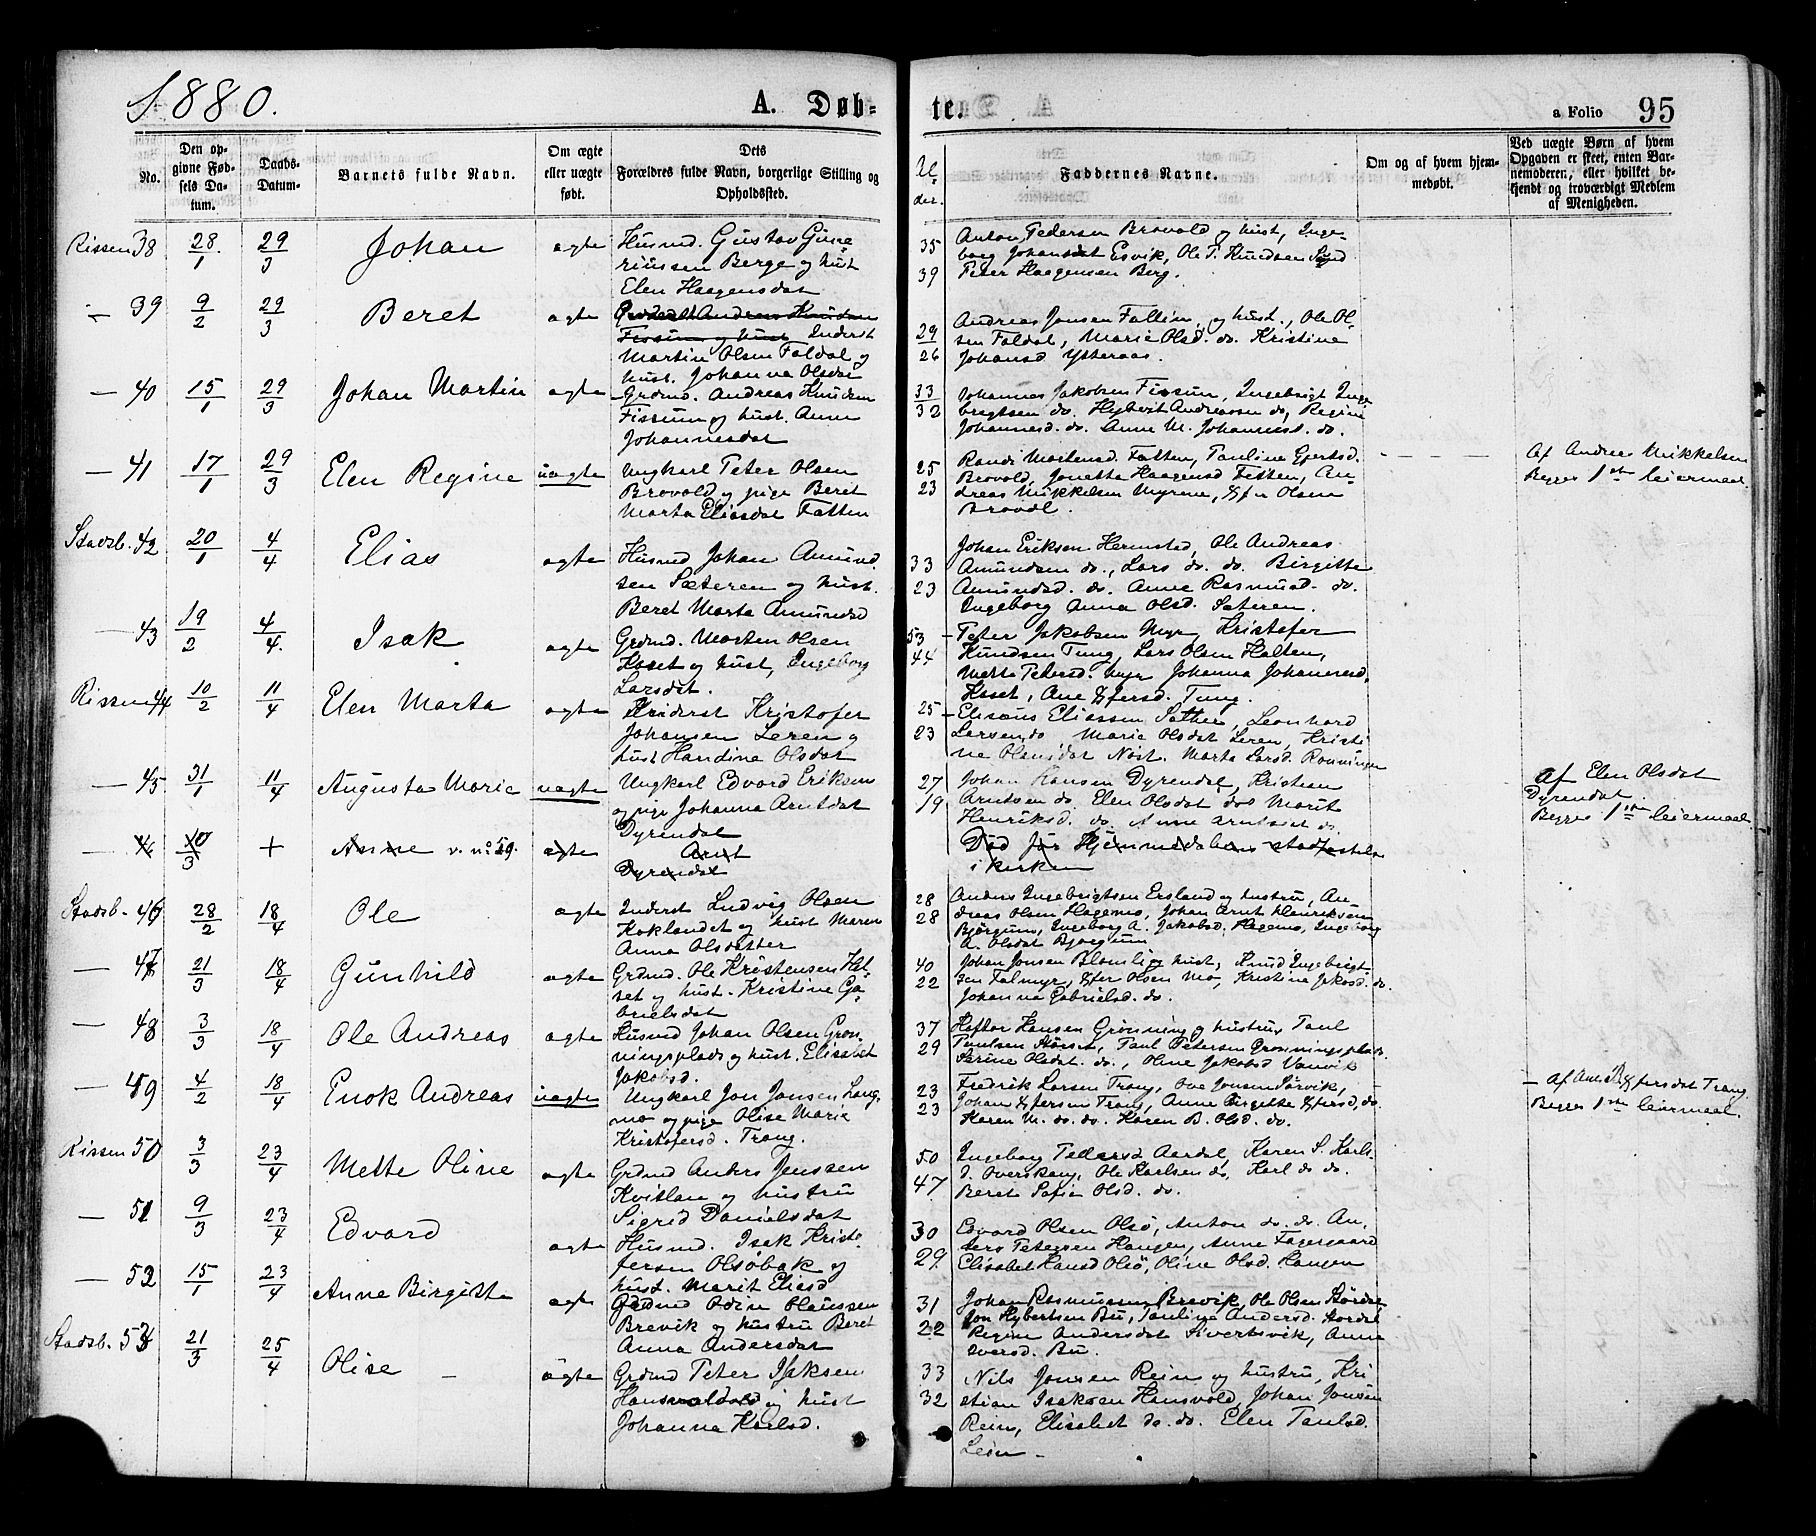 1880.
A. Døb-
te.
a Folio 95
No.
Den op-
givne Fød-
sels Da-
tum.
Daabs-
Datum.
Barnets fulde Navn.
Om ægte
eller uægte
født.
Dets
Forældres fulde Navn, borgerlige Stilling og
Opholdssted.
Al-
der.
Faddernes Navne.
Om og af hvem hjem-
medøbt.
Ved uægte Børn af hvem
Opgaven er skeet, enten Bar-
nemoderen, eller hvilket be-
kjendt og troværdigt Medlem
af Menigheden.
Rissen 38 28/1 29/3 Johan ægte
Husmd. Gustav Gune-
riussen Berge og hust
Elen Haagensdat
35
39
Anton Pedersen Brovold og hust, Inge-
borg Johansdat Esvik, Ole P. Knudsen
Peter Haagensen Berg.
— 39 9/2 29/3 Beret ægte
Grdmd. Andreas Knudsen
Fissum og hust Inderst
Martin Olsen Faldal og
hust. Johanna Olsdat
29
26
Andreas Jonsen Fallin og hust., Ole Ol-
sen Faldal, Marie Olsd. do. Kristine
Johansd Ytteraas.
— 40 15/1 29/3 Johan Martin ægte
Grdmd. Andreas Knudsen
Fissum og hust. Anne
Johannesdat
33
32
Johannes Jakobsen Fissum, Ingebrigt Inge-
brigtsen do. Andreassen do, Regine
Johannesd. do. Anne M. Johannesd. do.
— 41 17/1 29/3 Elen Regine uægte
Ungkarl Peter Olsen
Brovold og pige Beret
Marta Eliasdat Fatten
25
23
Randi Mortensd. Fatten, Pauline Gjertsd.
Brovold, Jonetta Haagensd Fatten, An-
dreas Mikkelsen Myrene, Olsen
Brovol.
Af Andreas Mikkelsen
Begges 1ste leiermaal.
Stadsb. 42 20/1 4/4 Elias ægte
Husmd Johan Amund-
sen Sæteren og hust.
Beret Marta Amundsd
33
23
Johan Eriksen Hermstad, Ole Andreas
Amundsen do., Lars do. do. Birgitte
Amundsd. do. Anne Rasmusd. do.
Ingeborg Anna Olsd. Sæteren.
— 43 19/2 4/4. Isak ægte
Grdmd. Morten Olsen
Haset og hust, Ingeborg
Larsdat.
53
44
Peter Jakobsen Myr, Kristofer
Knudsen Tung, Lars Olsen Halten,
Mette Petersd. Myr Johanna Johannesd,
Haset, Ane Tung.
Rissen 44 10/2 11/4 Elen Marta ægte
Inderst Kristofer
Johansen Leren og
hust Handine Olsdat
25
23
Elisæus Eliassen Sæther, Leonhard
Larsen do Marie Olsdat Leren, Kristi-
ne Olsdat Nøst. Marta Larsd. Rønningen
— 45 31/1 11/4 Augusta Marie uægte
Ungkarl Edvard Eriksen
og pige Johanna Arntsdat
Dyrendal
27
19
Johan Hansen Dyrendal, Kristian
Arntsen do. Elen Olsdat do. Marit
Henriksd. do. Anne Arntsdat do.
Af Elen Olsdat
Dyrendal.
Begges 1ste leiermaal.
— 46 10/3 + Anne v. no 59. ægte
Arnt
Dyrendal
Død før Hjemmedaaben stadfæstedes
i kirken
Stadsb. 46 28/2 18/4 Ole ægte
Inderst Ludvig Olsen
Koklandet og hust Maren
Anna Olsdatter
28
28
Anders Ingebrigtsen Ersland og hustru, An-
dreas Olsen Hagemo, Johan Arnt Henriksen
Bjørgum, Ingeborg A. Jakobsd. Hagemo, Ingeborg
A. Olsdat Bjørgum
— 47 21/3 18/4 Gunhild ægte
Grdmd. Ole Kristensen Ha-
set og hust. Kristine Ga-
brielsdat
40
22
Johan Jonsen Blomli og hust, Knud Ingebrigt-
sen Falmyr, Olsen Mo, Kristine Jakobsd. do.
Johanna Gabrielsd. do.
— 48 3/3 18/4 Ole Andreas ægte
Husmd Johan Olsen Grøn-
ningsplads og hust. Elisabet
Jakobsd.
37
29
Haftor Hansen Grønning og hustru, Paul
Paulsen Størset, Paul Petersen Grønningsplads.
Serine Olsdat. do., Oline Jakobsd Vanvik
— 49 4/2 18/4 Enok Andreas uægte
Ungkarl Jon Jonsen Lang-
mo og pige Olise Marie
Kristofersd. Trang.
23
23
Fredrik Larsen Trang, Ove Jonsen
Johan Trang, Anne Birgitte do.
Karen M. do. do. Karen B. Olsd. do.
— Af Trang
Begges 1ste leiermaal.
Rissen 50 3/3 23/4 Mette Oline ægte
Grdmd Anders Jenssen
Kvitland og hustru
Sigrid Danielsdat
50
47
Ingeborg Pedersd Aardal, Karen S. Karls-
d. Overskaug, Ole Karlsen do, Karl do do.
Beret Sofie Olsd. do.
— 51 9/3 23/4 Edvard ægte
Husmd. Isak Kristo-
fersen Olsøbak og
hust. Marit Eliasd
30
29
Edvard Olsen Olsø, Anton do. do. An-
ders Petersen Haugen, Anne Fagergaard
Elisabet Hansd Olsø, Oline Olsd. Haugen
— 52 15/1 23/4 Anne Birgitte ægte
Grdmd Odin Olaussen
Brevik og hustru Beret
Anna Andersdat
31
22
Johan Rasmussen Brevik, Ole Olsen Størdal
Jon Hybertsen Bu, Pauline Andersd. Størdal
Regine Andersdat Kvertsvik, Anne
Iversd. Bu.
Stadsb. 53 21/3 25/4 Olise — ægte
Grdmd Peter Isaksen
Hansvold og hust
Johanna Karlsd.
33
32
Nils Jonsen Rein og hustru, Kri-
stian Isaksen Hansvold, Johan Jonsen
Rein, Elisabet do. do. Elen Paulsd.
Lein —